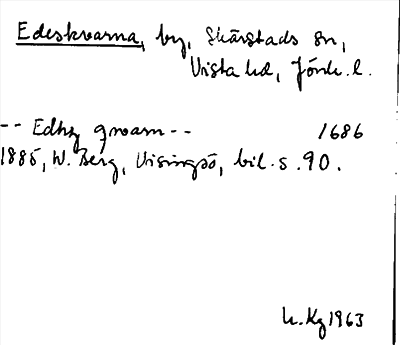 Edeskvarna, by, Skärstads sn,
Vista hd, Jönk. l.
-- Edhz qwarn -- 1686
1885, W. Berg, Visingsö, bil. s. 90.
H. Kg 1963